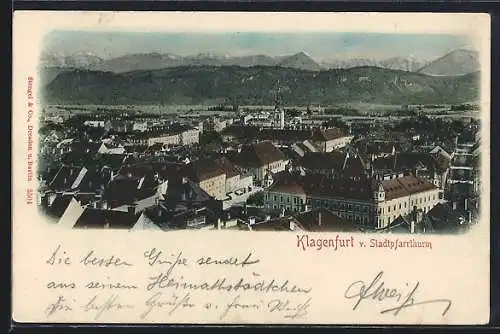 Stengel & Co., Dresden u. Berlin 5504
Klagenfurt v. Stadtpfarrthurm
Die besten Grüße sendet
aus seinem Heimathstädtchen
die besten Grüße v. frau Weiss
AWeiß